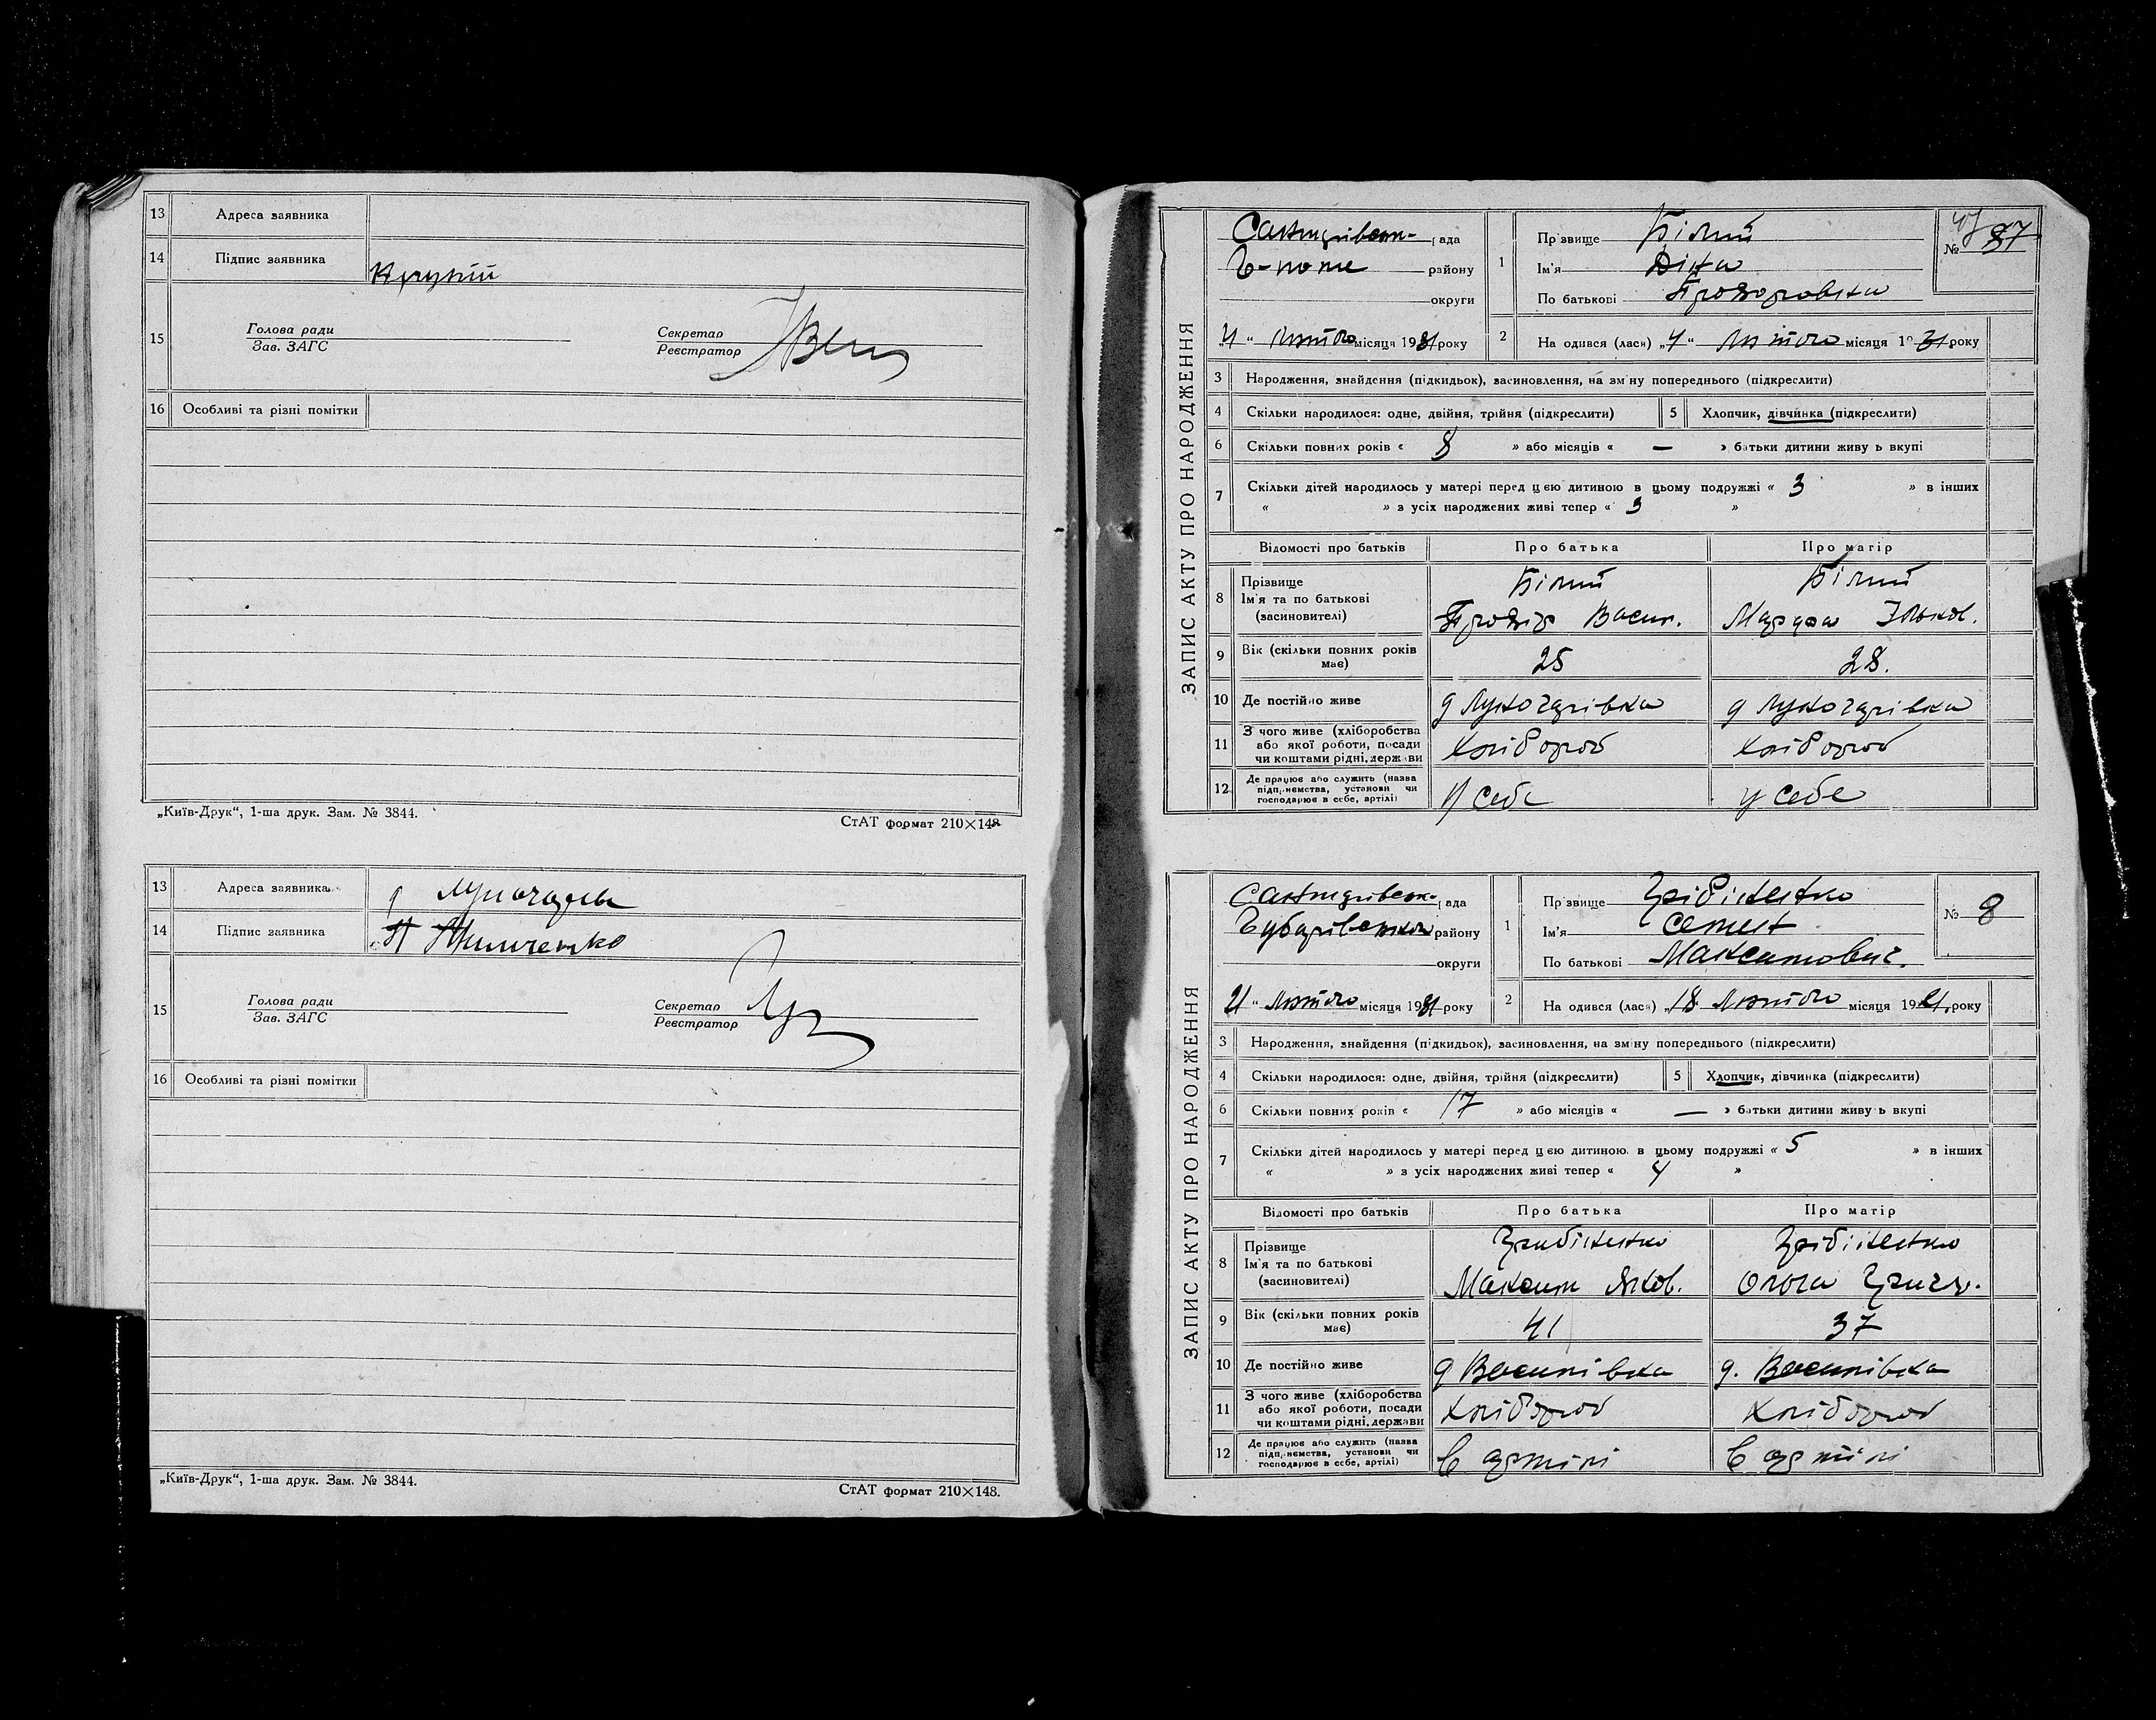 13 Адреса заявника
14 Підпис заявника
15 Голова ради
Зав. ЗАГС
Секретар
Реєстратор
16 Особливі та різні помітки
„Київ-Друк“, 1-ша друк. Зам. № 3844.
СтАТ формат 210×148
13 Адреса заявника
14 Підпис заявника
15 Голова ради
Зав. ЗАГС
Секретар
Реєстратор
16 Особливі та різні помітки
„Київ-Друк“, 1-ша друк. Зам. № 3844.
СтАТ формат 210×148.
ЗАПИС АКТУ ПРО НАРОДЖЕННЯ
рада
району
округи
1 Прізвище Білий
Ім'я Діна
По батькові
№ 7
лютого місяця 1931 року
2 Народився (лася) „4“ лютого місяця 1931 року
3 Народження, знайдення (підкидьок), засиновлення, на зміну попереднього (підкреслити)
4 Скільки народилося: одне, двійня, трійня (підкреслити)
5 Хлопчик, дівчинка (підкреслити)
6 Скільки повних років « 8 » або місяців « — » батьки дитини живуть вкупі
7 Скільки дітей народилось у матері перед цією дитиною в цьому подружжі « 3 » в інших
« » з усіх народжених живі тепер « 3 »
Відомості про батьків Про батька Про матір
8 Прізвище
Ім'я та по батькові
(засиновителі)
Білий
Васил.
Білий
Марфа Ільков.
9 Вік (скільки повних років має) 25 28.
10 Де постійно живе
11 З чого живе (хліборобства або якої роботи, посади чи коштами рідні, держави Хлібороб Хлібороб
12 Де працює або служить (назва підприємства, установи чи господарює в себе, артілі) У себе у себе
ЗАПИС АКТУ ПРО НАРОДЖЕННЯ
рада
району
округи
1 Прізвище Грібіненко
Ім'я Семен
По батькові Максимович.
№ 8
21 “ лютого місяця 1931 року
2 Народився (лася) „18 лютого місяця 1931 року
3 Народження, знайдення (підкидьок), засиновлення, на зміну попереднього (підкреслити)
4 Скільки народилося: одне, двійня, трійня (підкреслити)
5 Хлопчик, дівчинка (підкреслити)
6 Скільки повних років « 17 » або місяців « — » батьки дитини живуть вкупі
7 Скільки дітей народилось у матері перед цією дитиною в цьому подружжі « 5 » в інших
« » з усіх народжених живі тепер « 4 »
Відомості про батьків Про батька Про матір
8 Прізвище
Ім'я та по батькові
(засиновителі)
Грибіненко
Максим Яков.
Грібіненко
Ольга Григ.
9 Вік (скільки повних років має) 41 37
10 Де постійно живе д Василівка д. Василівка
11 З чого живе (хліборобства або якої роботи, посади чи коштами рідні, держави Хлібороб Хлібороб
12 Де працює або служить (назва підприємства, установи чи господарює в себе, артілі) в артілі в артілі